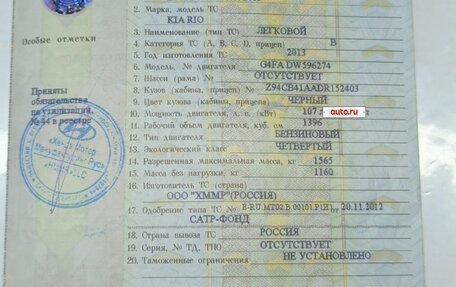 2. Марка, модель ТС
KIA RIO
3. Наименование (тип ТС) ЛЕГКОВОЙ
4. Категория ТС (А, В, С, D, прицеп) B
5. Год изготовления ТС 2013
6. Модель, № двигателя G4FA DW596274
7. Шасси (рама) № ОТСУТСТВУЕТ
8. Кузов (кабина, прицеп) № Z94CB41AADR152403
9. Цвет кузова (кабины, прицепа) ЧЕРНЫЙ
10. Мощность двигателя, л. с. (кВт) 107
auto.ru
11. Рабочий объем двигателя, куб. см 1396
12. Тип двигателя БЕНЗИНОВЫЙ
13. Экологический класс ЧЕТВЕРТЫЙ
14. Разрешенная максимальная масса, кг 1565
15. Масса без нагрузки, кг 1160
16. Изготовитель ТС (страна)
ООО "ХММР"(РОССИЯ)
17. Одобрение типа ТС № E-RU.MT02.B.00101.P1И1 от 20.11.2012
САТР-ФОНД
18. Страна вывоза ТС РОССИЯ
19. Серия, № ТД, ТПО ОТСУТСТВУЕТ
20. Таможенные ограничения НЕ УСТАНОВЛЕНО
Особые отметки
Приняты
обязательства
по утилизации,
№ 34 в реестре